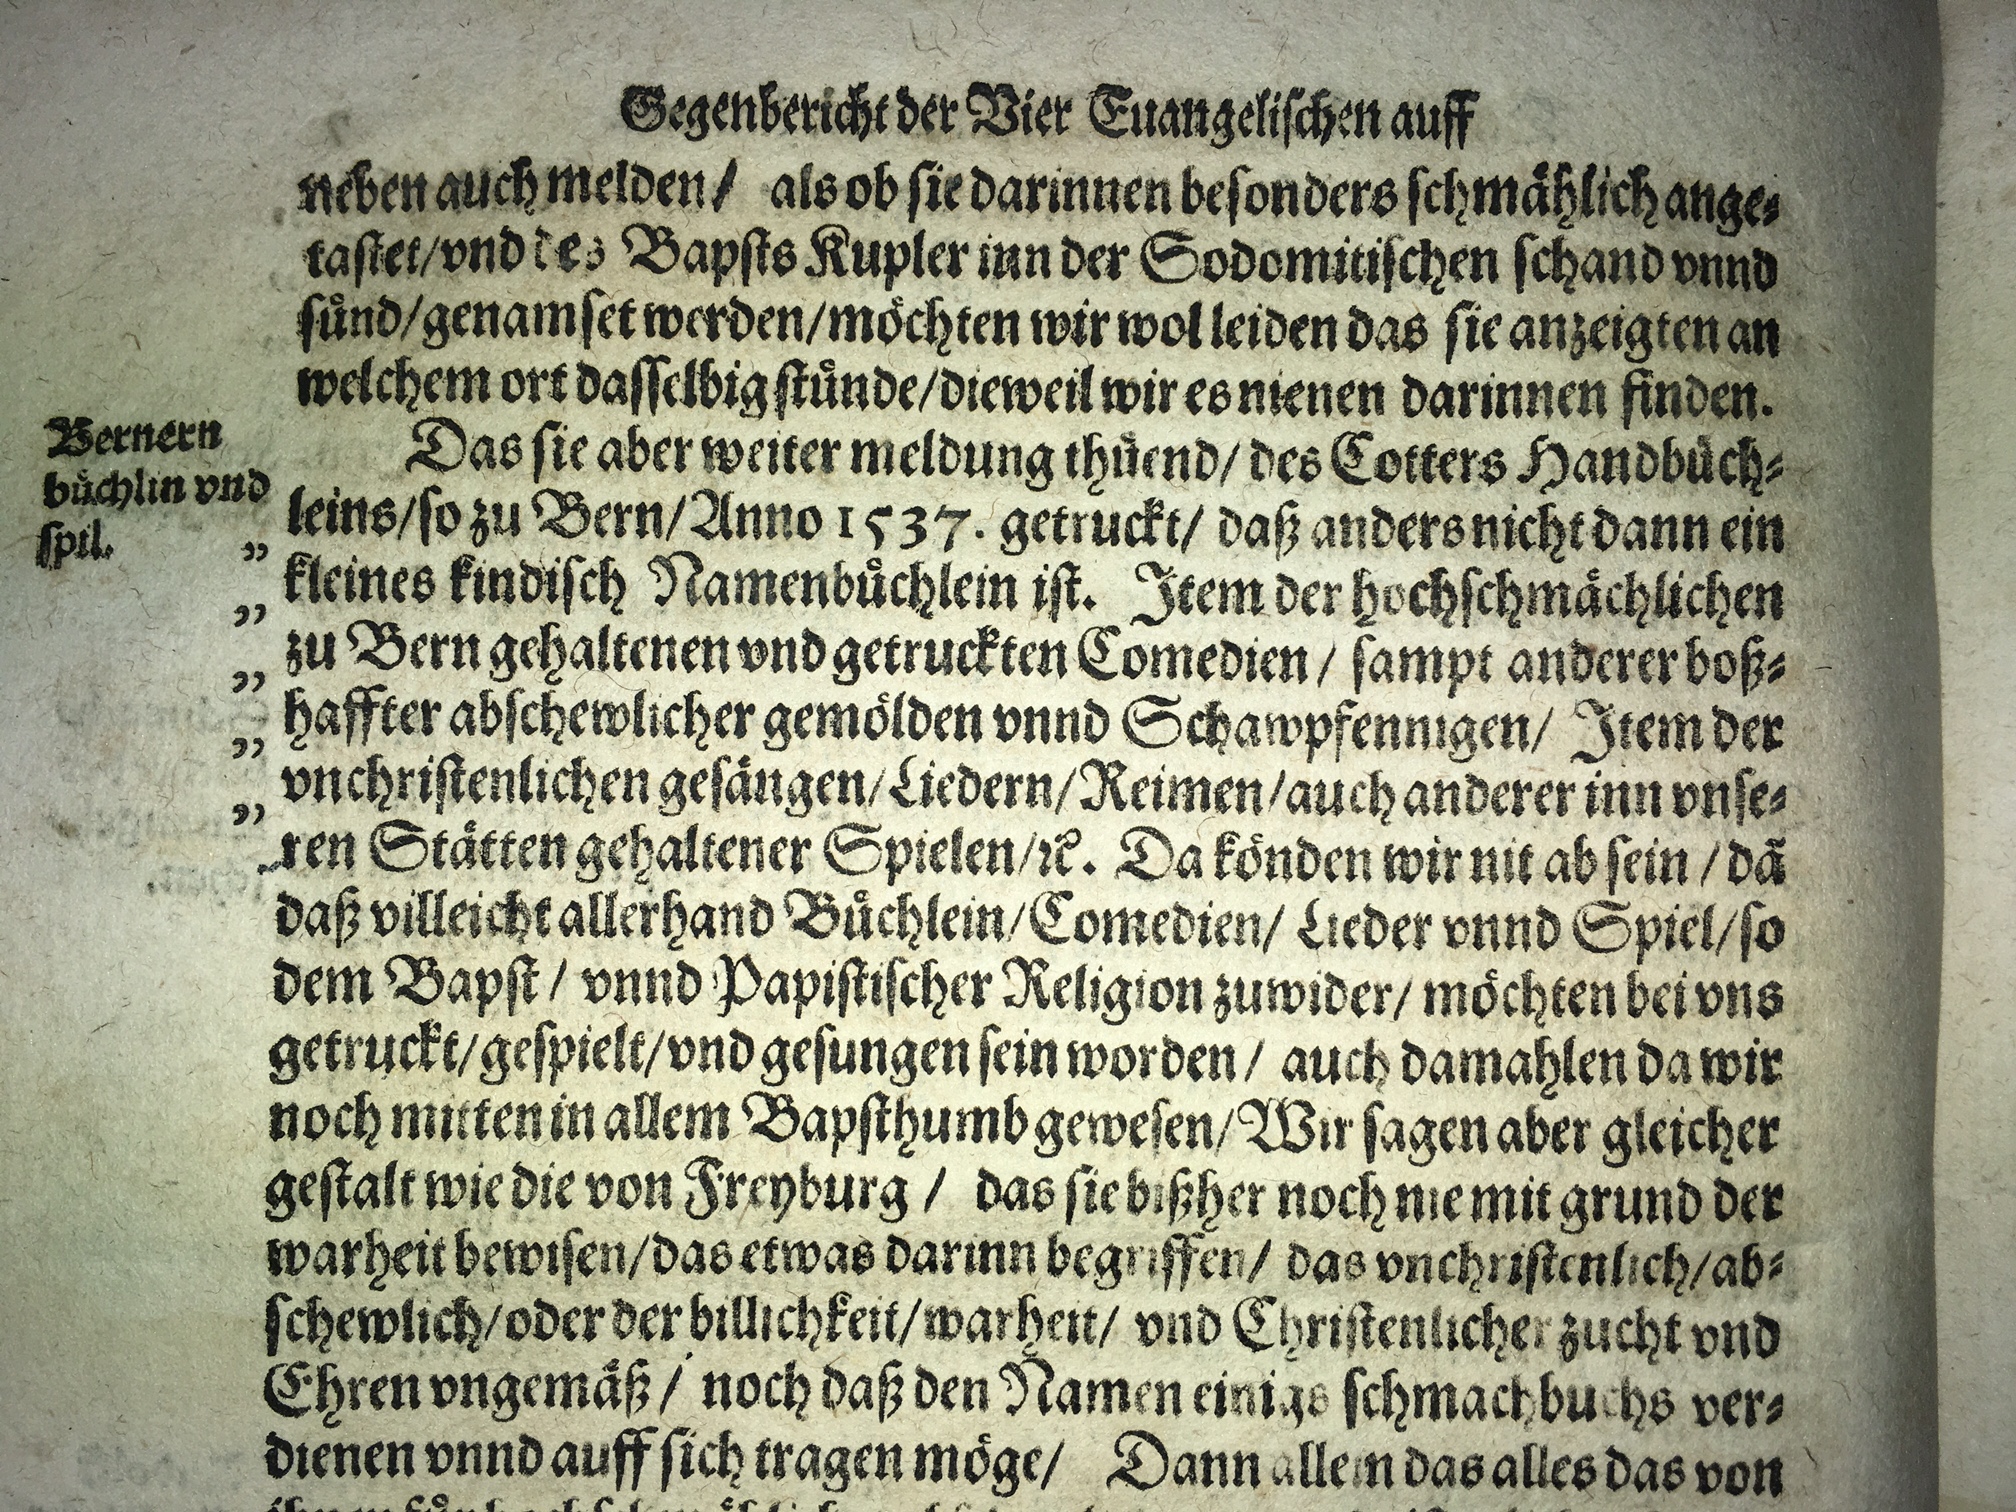 Gegenbericht der Vier Euangelischen auff
neben auch melden / als ob sie darinnen besonders schmählich ange⸗
tastet/vnd des Bapsts Kupler inn der Sodomitischen schand vnnd
sünd/genamset werden/möchten wir wol leiden das sie anzeigten an
welchem ort dasselbig stünde/dieweil wir es nienen darinnen finden.
Bernern
büchlin vnd
spil.
Das sie aber weiter meldung thüend/ des Cotters Handbüch⸗
leins/so zu Bern/Anno 1537. getruckt/ daß anders nicht dann ein
„ kleines kindisch Namenbůchlein ist. Item der hochschmächlichen
„ zu Bern gehaltenen vnd getruckten Comedien / sampt anderer boß⸗
„ haffter abschewlicher gemölden vnnd Schawpfennigen/ Item der
„ vnchristenlichen gesängen/Liedern/Reimen/auch anderer inn vnse⸗
„ ren Stätten gehaltener Spielen/ꝛc. Da könden wir nit ab sein / dā
daß villeicht allerhand Bůchlein/Comedien/ Lieder vnnd Spiel/so
dem Bapst / vnnd Papistischer Religion zuwider/ möchten bei vns
getruckt/gespielt/vnd gesungen sein worden / auch damahlen da wir
noch mitten in allem Bapsthumb gewesen/Wir sagen aber gleicher
gestalt wie die von Freyburg / das sie bißher noch nie mit grund der
warheit bewisen/das etwas darinn begriffen/ das vnchristenlich/ab⸗
schewlich/oder der billichkeit/warheit/ vnd Christenlicher zucht vnd
Ehren vngemäß / noch daß den Namen einigs schmachbuchs ver⸗
dienen vnnd auff sich tragen möge/ Dann allein das alles das von